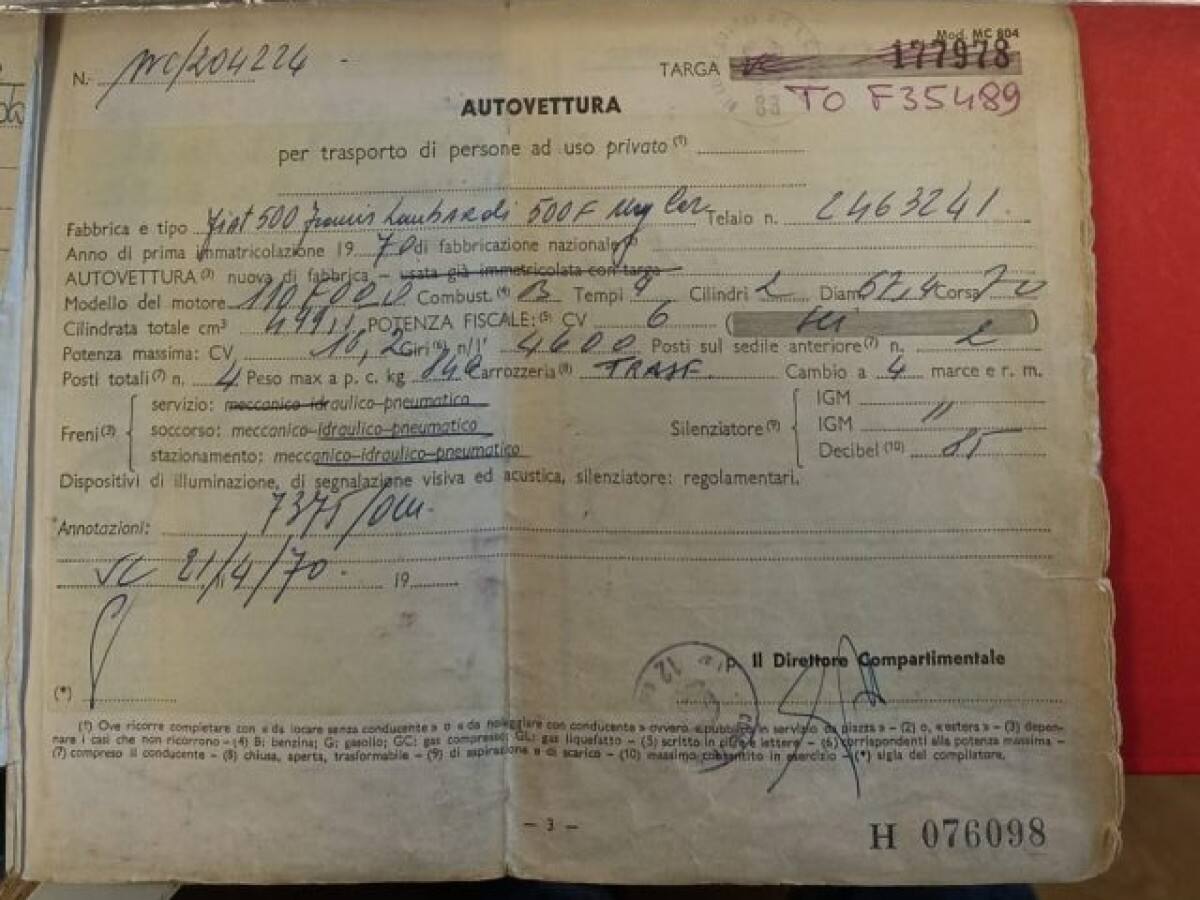 Mod. MC 804
N. MC/204224
TARGA VC 177978
TO F35489
AUTOVETTURA
per trasporto di persone ad uso privato (1)
Fabbrica e tipo Fiat 500 Francis Lombardi 500F My Car Telaio n. 2463241
Anno di prima immatricolazione 19 70 di fabbricazione nazionale (2)
AUTOVETTURA (3) nuova di fabbrica – usata già immatricolata con targa
Modello del motore 110F000 Combust. (4) B Tempi 4 Cilindri 2 Diam. 67,4 Corsa 70
Cilindrata totale cm³ 499,1 POTENZA FISCALE: (5) CV 6 (sei)
Potenza massima: CV 16,2 Giri (6) n/1' 4600 Posti sul sedile anteriore (7) n. 2
Posti totali (7) n. 4 Peso max a p. c. kg 840 Carrozzeria (8) TRASF. Cambio a 4 marce e r. m.
Freni (3)
servizio: meccanico-idraulico-pneumatica
soccorso: meccanico-idraulico-pneumatico
stazionamento: meccanico-idraulico-pneumatico
Silenziatore (9)
IGM
IGM "
Decibel (10) 85
Dispositivi di illuminazione, di segnalazione visiva ed acustica, silenziatore: regolamentari.
Annotazioni: 7375/OM.
VC 21/4/70. 19
p. Il Direttore Compartimentale
(*)
(1) Ove ricorre completare con « da locare senza conducente » o « da noleggiare con conducente » ovvero « pubblico in servizio da piazza » – (2) o, « estera » – (3) depen-
nare i casi che non ricorrono – (4) B: benzina; G: gasolio; GC: gas compresso; GL: gas liquefatto – (5) scritto in cifre e lettere – (6) corrispondenti alla potenza massima –
(7) compreso il conducente – (8) chiusa, aperta, trasformabile – (9) di aspirazione e di scarico – (10) massimo consentito in esercizio – (*) sigla del compilatore.
– 3 –
H 076098